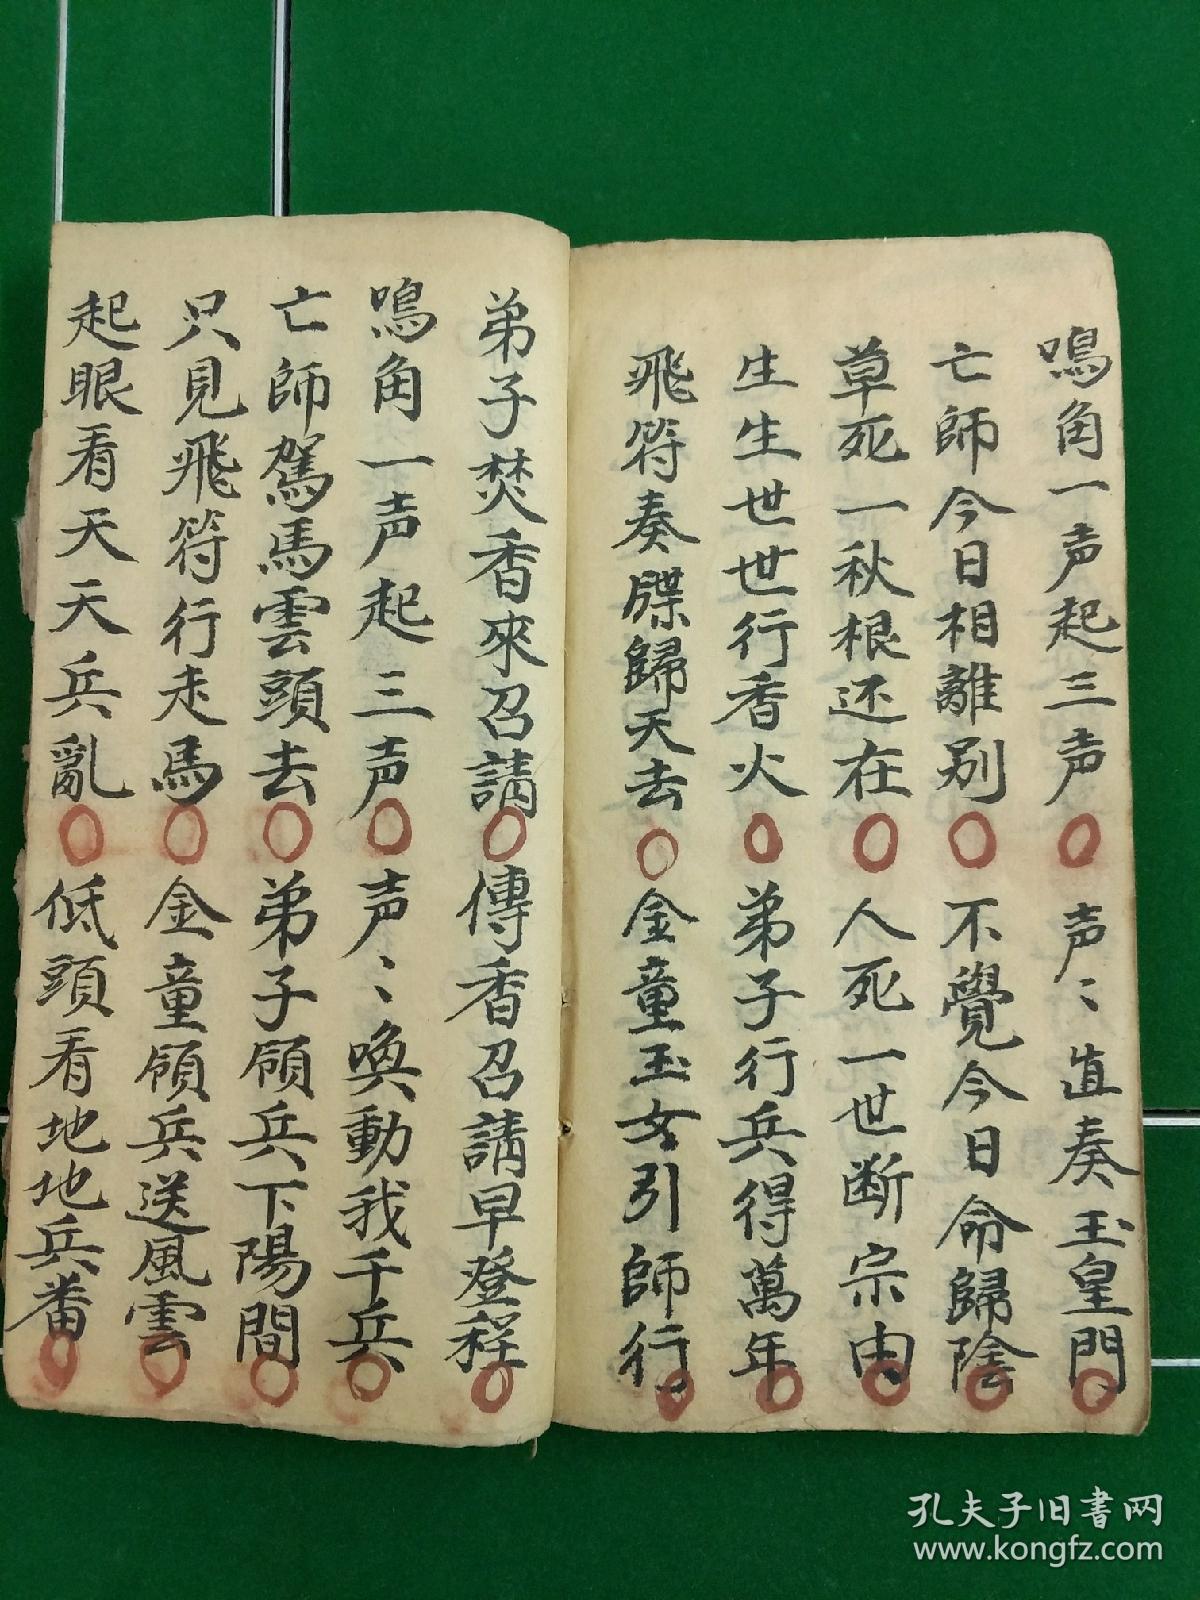 鳴角一声起三声○声〻直奏玉皇門○
亡師今日相離别○不覺今日命歸陰○
草死一秋根还在○人死一世断宗由○
生生世世行香火○弟子行兵得萬年○
飛符奏牒歸天去○金童玉女引師行○
弟子焚香來召請○傳香召請早登程○
鳴角一声起三声○声〻喚動我千兵○
亡師駕馬雲頭去○弟子領兵下陽間○
只見飛符行走馬○金童領兵送風雲○
起眼看天天兵亂○低頭看地地兵番○
孔夫子旧書网
www.kongfz.com